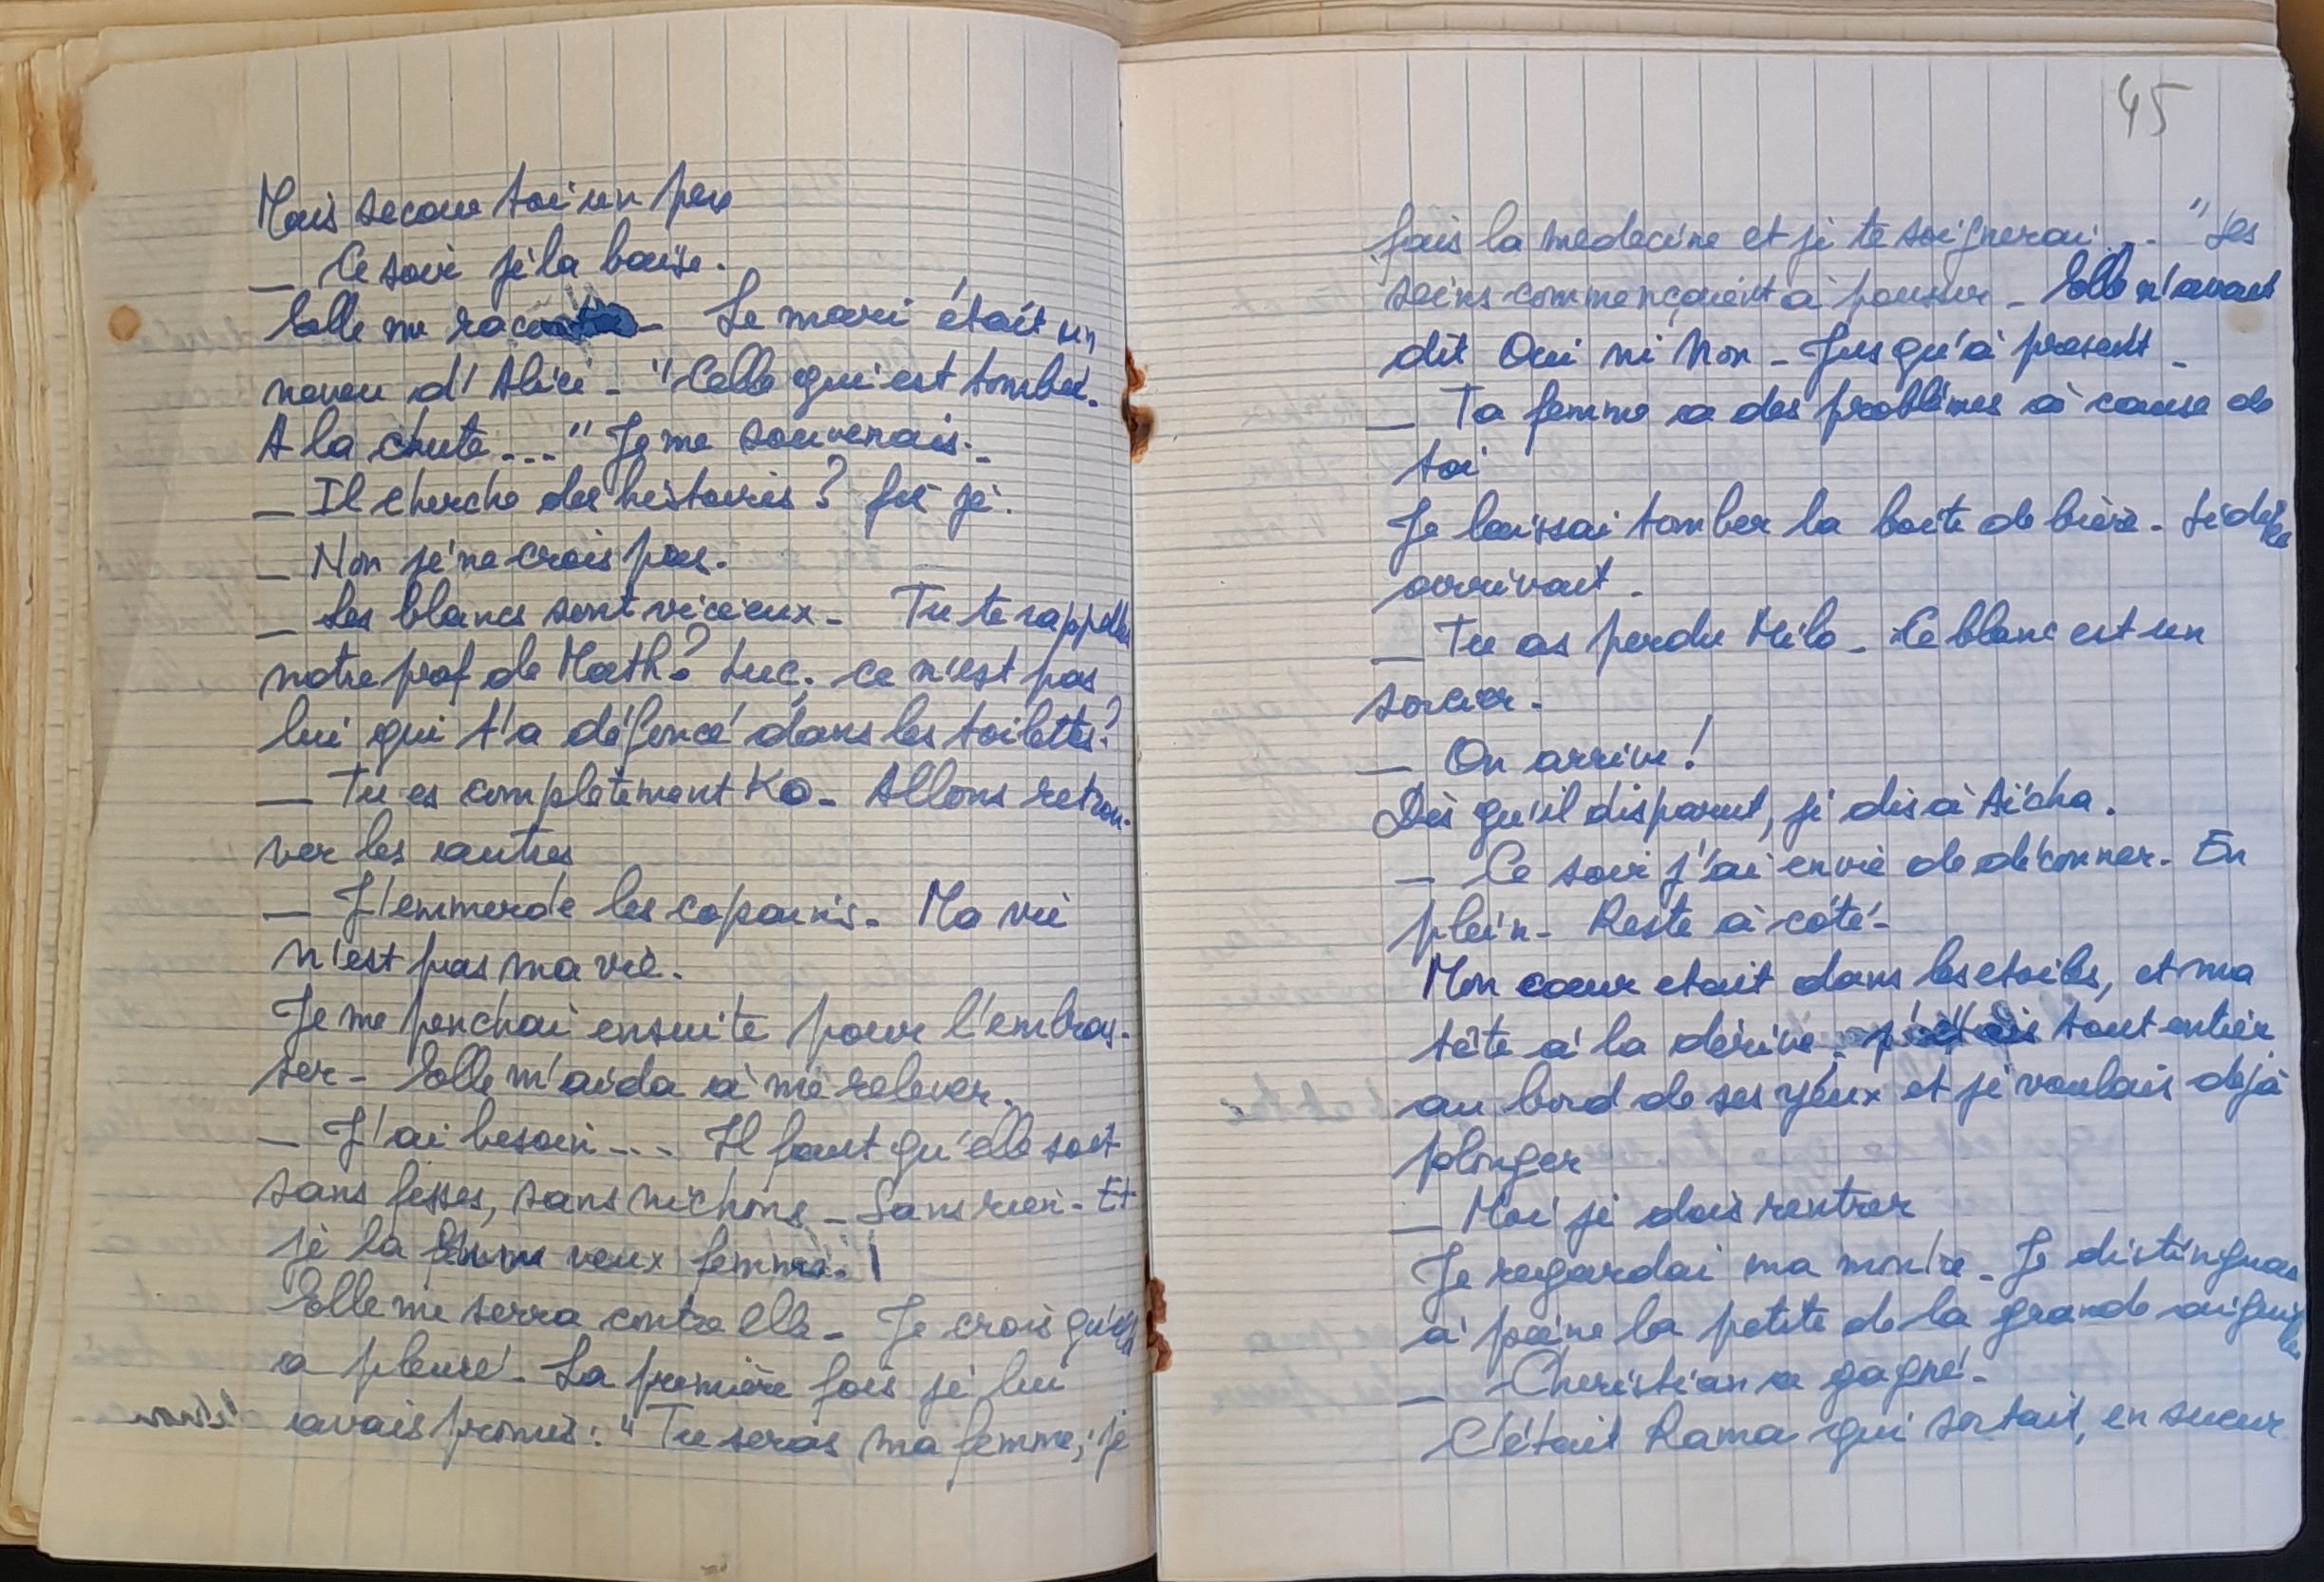 Mais secoue toi un peu
_ Ce soir je la baise.
Elle me raconta _ Le mari était un
neveu d'Alice _ "Celle qui est tombée.
A la chute ..." Je me souvenais._
_ Il cherche des histoires ? fis je.
_ Non je ne crois pas.
_ Les blancs sont vicieux _ Tu te rappelles
notre prof de Math ? Luc, ce n'est pas
lui qui t'a défoncé dans les toilettes ?
_ Tu es complètement KO _ Allons retrou-
ver les autres
_ J'emmerde les copains _ Ma vie
n'est pas ma vie.
Je me penchai ensuite pour l'embras-
ser _ Elle m'aida à me relever.
_ J'ai besoin ... Il faut qu'elle soit
sans fesses, sans nichons _ Sans rien _ Et
je la veux femme. !
Elle me serra contre elle _ Je crois qu'elle
a pleuré _ La première fois je lui
avais promis : "Tu seras ma femme, je
45
fais la médecine et je te soignerai ..." Ses
seins commençaient à pousser _ Elle n'avait
dit Oui ni Non _ Jusqu'à présent _
_ Ta femme a des problèmes à cause de
toi
Je laissai tomber la boite de bière _ Sidiki
arrivait _
_ Tu as perdu Milo _ Ce blanc est un
sorcier.
_ On arrive !
Dès qu'il disparut, je dis à Aïcha.
_ Ce soir j'ai envie de déconner _ En
plein _ Reste à côté _
Mon coeur etait dans les etoiles, et ma
tête à la dérive, j'étais tout entier
au bord de ses yeux et je voulais dejà
plonger
_ Moi je dois rentrer
Je regardai ma montre _ Je distinguas
à peine la petite de la grande aiguille
_ Christian a gagné _
C'était Rama qui sortait, en sueur